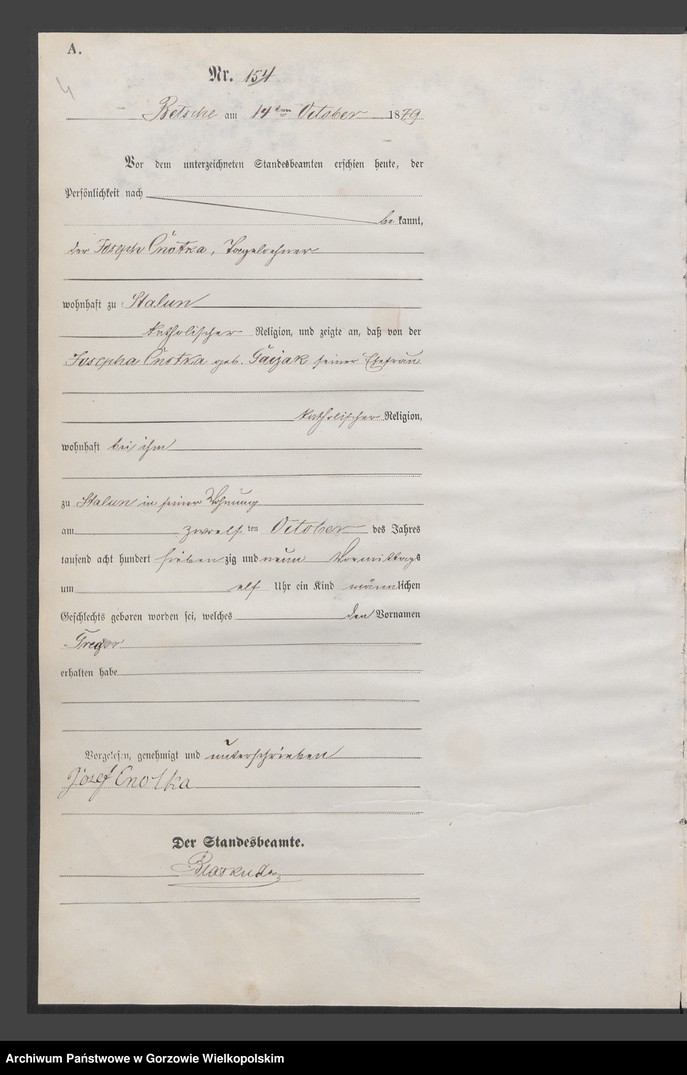 A.
Nr. 154
4
Betsche am 14ten October 1879
Vor dem unterzeichneten Standesbeamten erschien heute, der
Persönlichkeit nach
bekannt,
der Joseph Cnotka, Tagelöhner
wohnhaft zu Stalun
katholischer Religion, und zeigte an, daß von der
Josepha Cnotka geb. seiner Ehefrau
katholischer Religion,
wohnhaft bei ihm
zu Stalun in seiner Wohnung
am zwoelften October des Jahres
tausend acht hundert siebenzig und neun Vormittags
um elf Uhr ein Kind männlichen
Geschlechts geboren worden sei, welches den Vornamen
Gregor
erhalten habe
Vorgelesen, genehmigt und unterschrieben
Józef Cnotka
Der Standesbeamte.
Archiwum Państwowe w Gorzowie Wielkopolskim